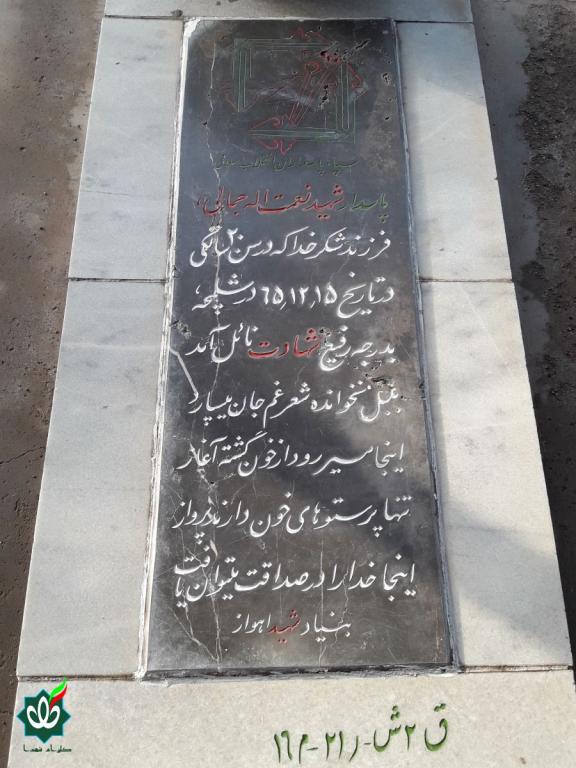 سپاه پاسداران انقلاب اسلامی
پاسدار شهید نعمت اله جمالی،
فرزند شکر خدا که در سن ۲۰ سالگی
در تاریخ ۶۵،۱۲،۱۵ در شلمچه
بدرجه رفیع شهادت نائل آمد
بلبل نخوانده شعر غم جان میسپارد
اینجا مسیر رود از خون گشته آغاز
تنها پرستوهای خون دارند پرواز
اینجا خدا را در صداقت میتوان یافت
بنیاد شهید اهواز
ق ۲ ش - ر ۲۱ - م ۱۶
گلزار شهدا